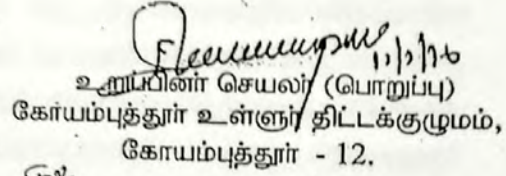 11/2/26
உறுப்பினர் செயலர் (பொறுப்பு)
கோயம்புத்தூர் உள்ளூர் திட்டக்குழுமம்,
கோயம்புத்தூர் - 12.